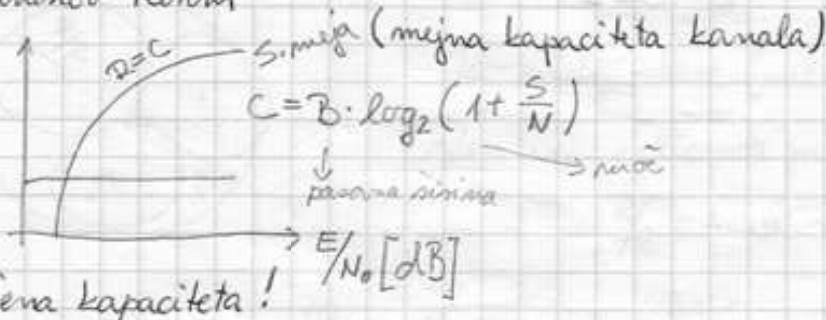 R=C
S. meja (mejna kapaciteta kanala)
C = B · log₂ (1 + S/N)
pasovna širina
moč
E/N₀ [dB]
kapaciteta!